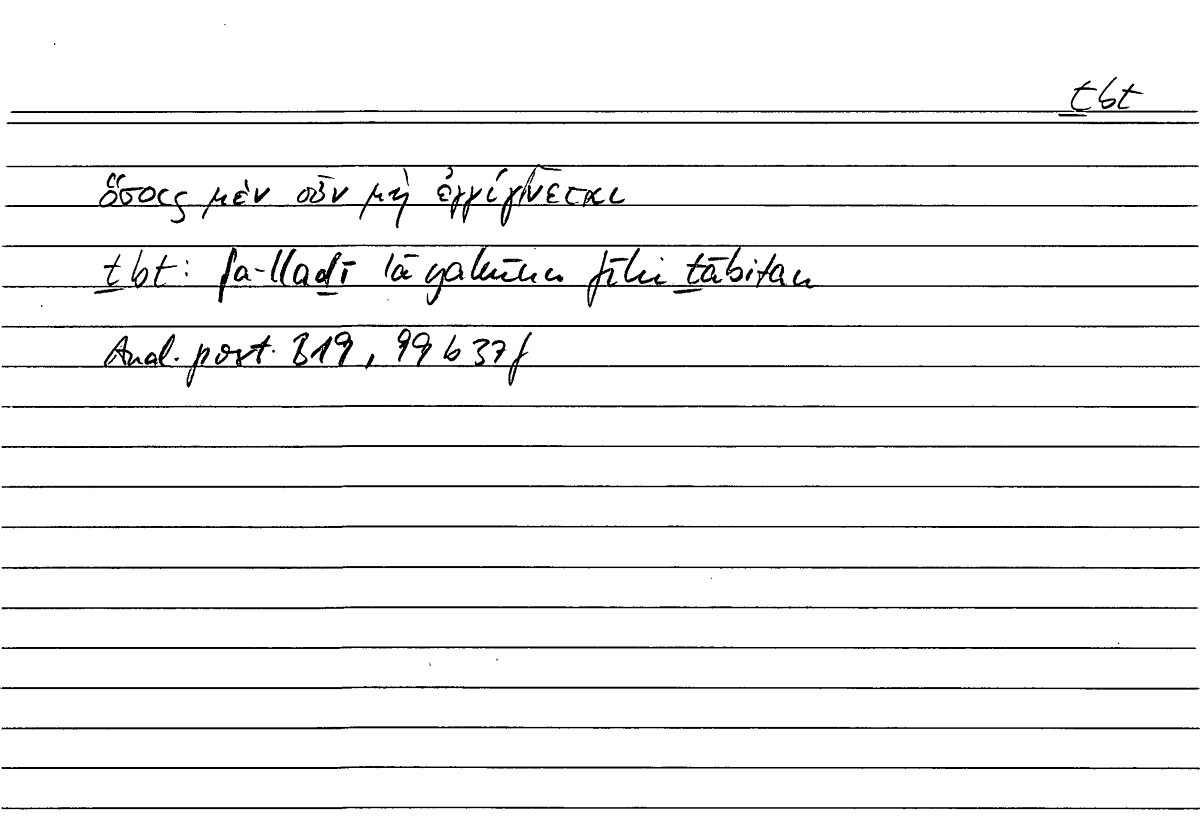 ṯbt
ὅσοις μὲν οὖν μὴ ἐγγίγνεται
ṯbt: fa-llaḏī lā yakūnu fīhi ṯābitan
Anal. post. B19, 99 b 37f